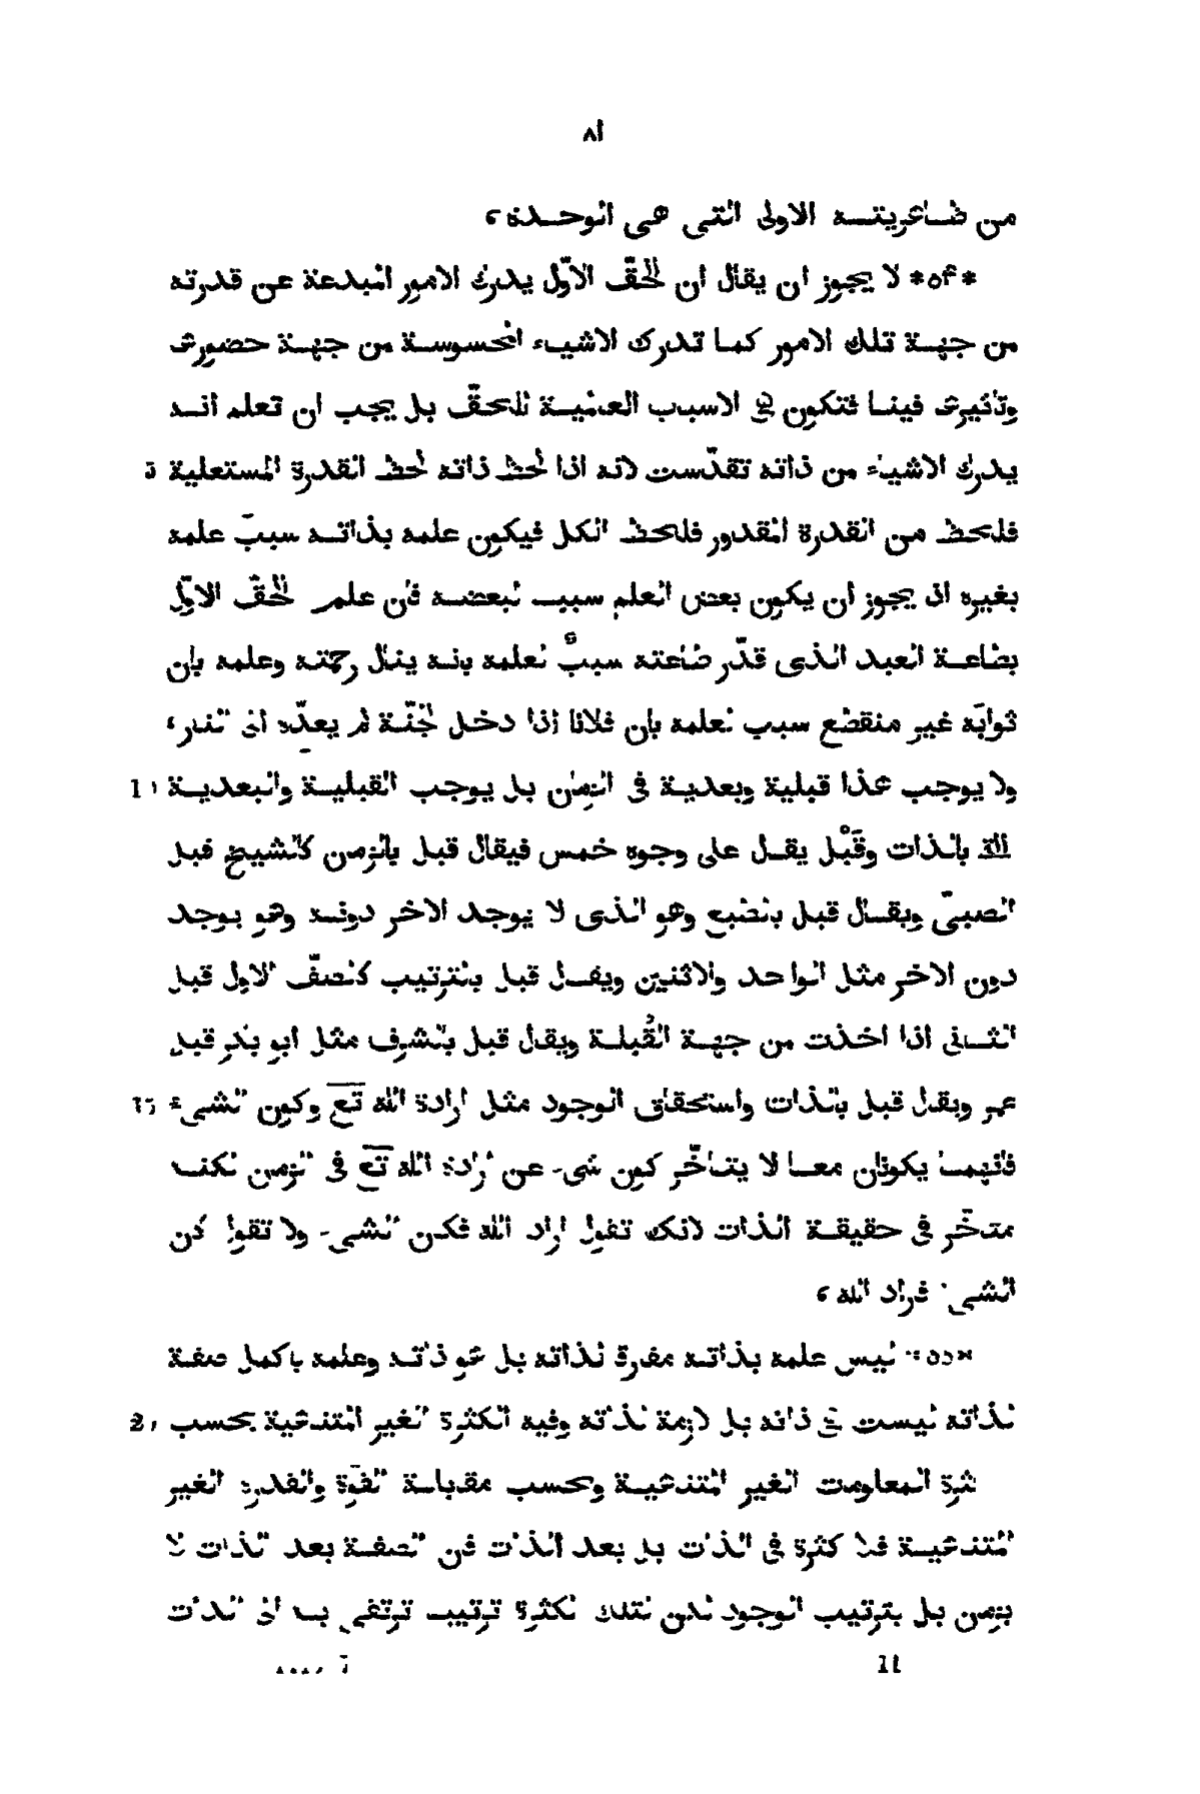 ٨١
من ظاهريته الاولى التى هى الوحدة،
*٥٤* لا يجوز ان يقال ان الحقّ الاوّل يدرك الامور المبدعة عن قدرته
من جهة تلك الامور كما تدرك الاشياء المحسوسة من جهة حضورى
وتاثيرى فينا فتكون هى الاسباب العالمية للحقّ بل يجب ان تعلم انه
يدرك الاشياء من ذاته تقدّست لانه اذا لحظ ذاته لحظ القدرة المستعلية 5
فلحظ من القدرة المقدور فلحظ الكل فيكون علمه بذاته سببَ علمه
بغيره اذ يجوز ان يكون بعض العلم سببا لبعضه فان علم الحقّ الاوّل
بطاعة العبد الذى قدّر طاعته سببٌ لعلمه بانه ينال رحمته وعلمه بان
ثوابَه غير منقطع سبب لعلمه بان فلانا إذا دخل الجنّة لم يعدّه الى النار،
ولا يوجب هذا قبلية وبعدية فى الزمان بل يوجب القبلية والبعدية 10
التى بالذات وقَبْل يقال على وجوه خمس فيقال قبل بالزمن كالشيخ قبل
الصبىّ ويقال قبل بالطبع وهو الذى لا يوجد الاخر دونه وهو يوجد
دون الاخر مثل الواحد والاثنين ويقال قبل بالترتيب كالصفّ الاول قبل
الثانى اذا اخذت من جهة القُبلة ويقال قبل بالشرف مثل ابو بكر قبل
عمر ويقال قبل بالذات واستحقاق الوجود مثل ارادة الله تع وكون الشىء 15
فانهما يكونان معا لا يتاخّر كون شىء عن ارادة الله تع فى الزمن لكنه
متاخّر فى حقيقة الذات لانك تقول اراد الله فكان الشىء ولا تقول كان
الشىء فاراد الله،
*٥٥* ليس علمه بذاته مفارقا لذاته بل هو ذاته وعلمه بالكل صفة
لذاته ليست هى ذاته بل لازمة لذاته وفيه الكثرة الغير المتناهية بحسب 20
كثرة المعلومات الغير المتناهية وبحسب مقابلة القوّة والقدرة الغير
المتناهية فلا كثرة فى الذات بل بعد الذات فان الصفة بعد الذات لا
بزمن بل بترتيب الوجود لكن لتلك الكثرة ترتيب ترتقى به الى الذات
11